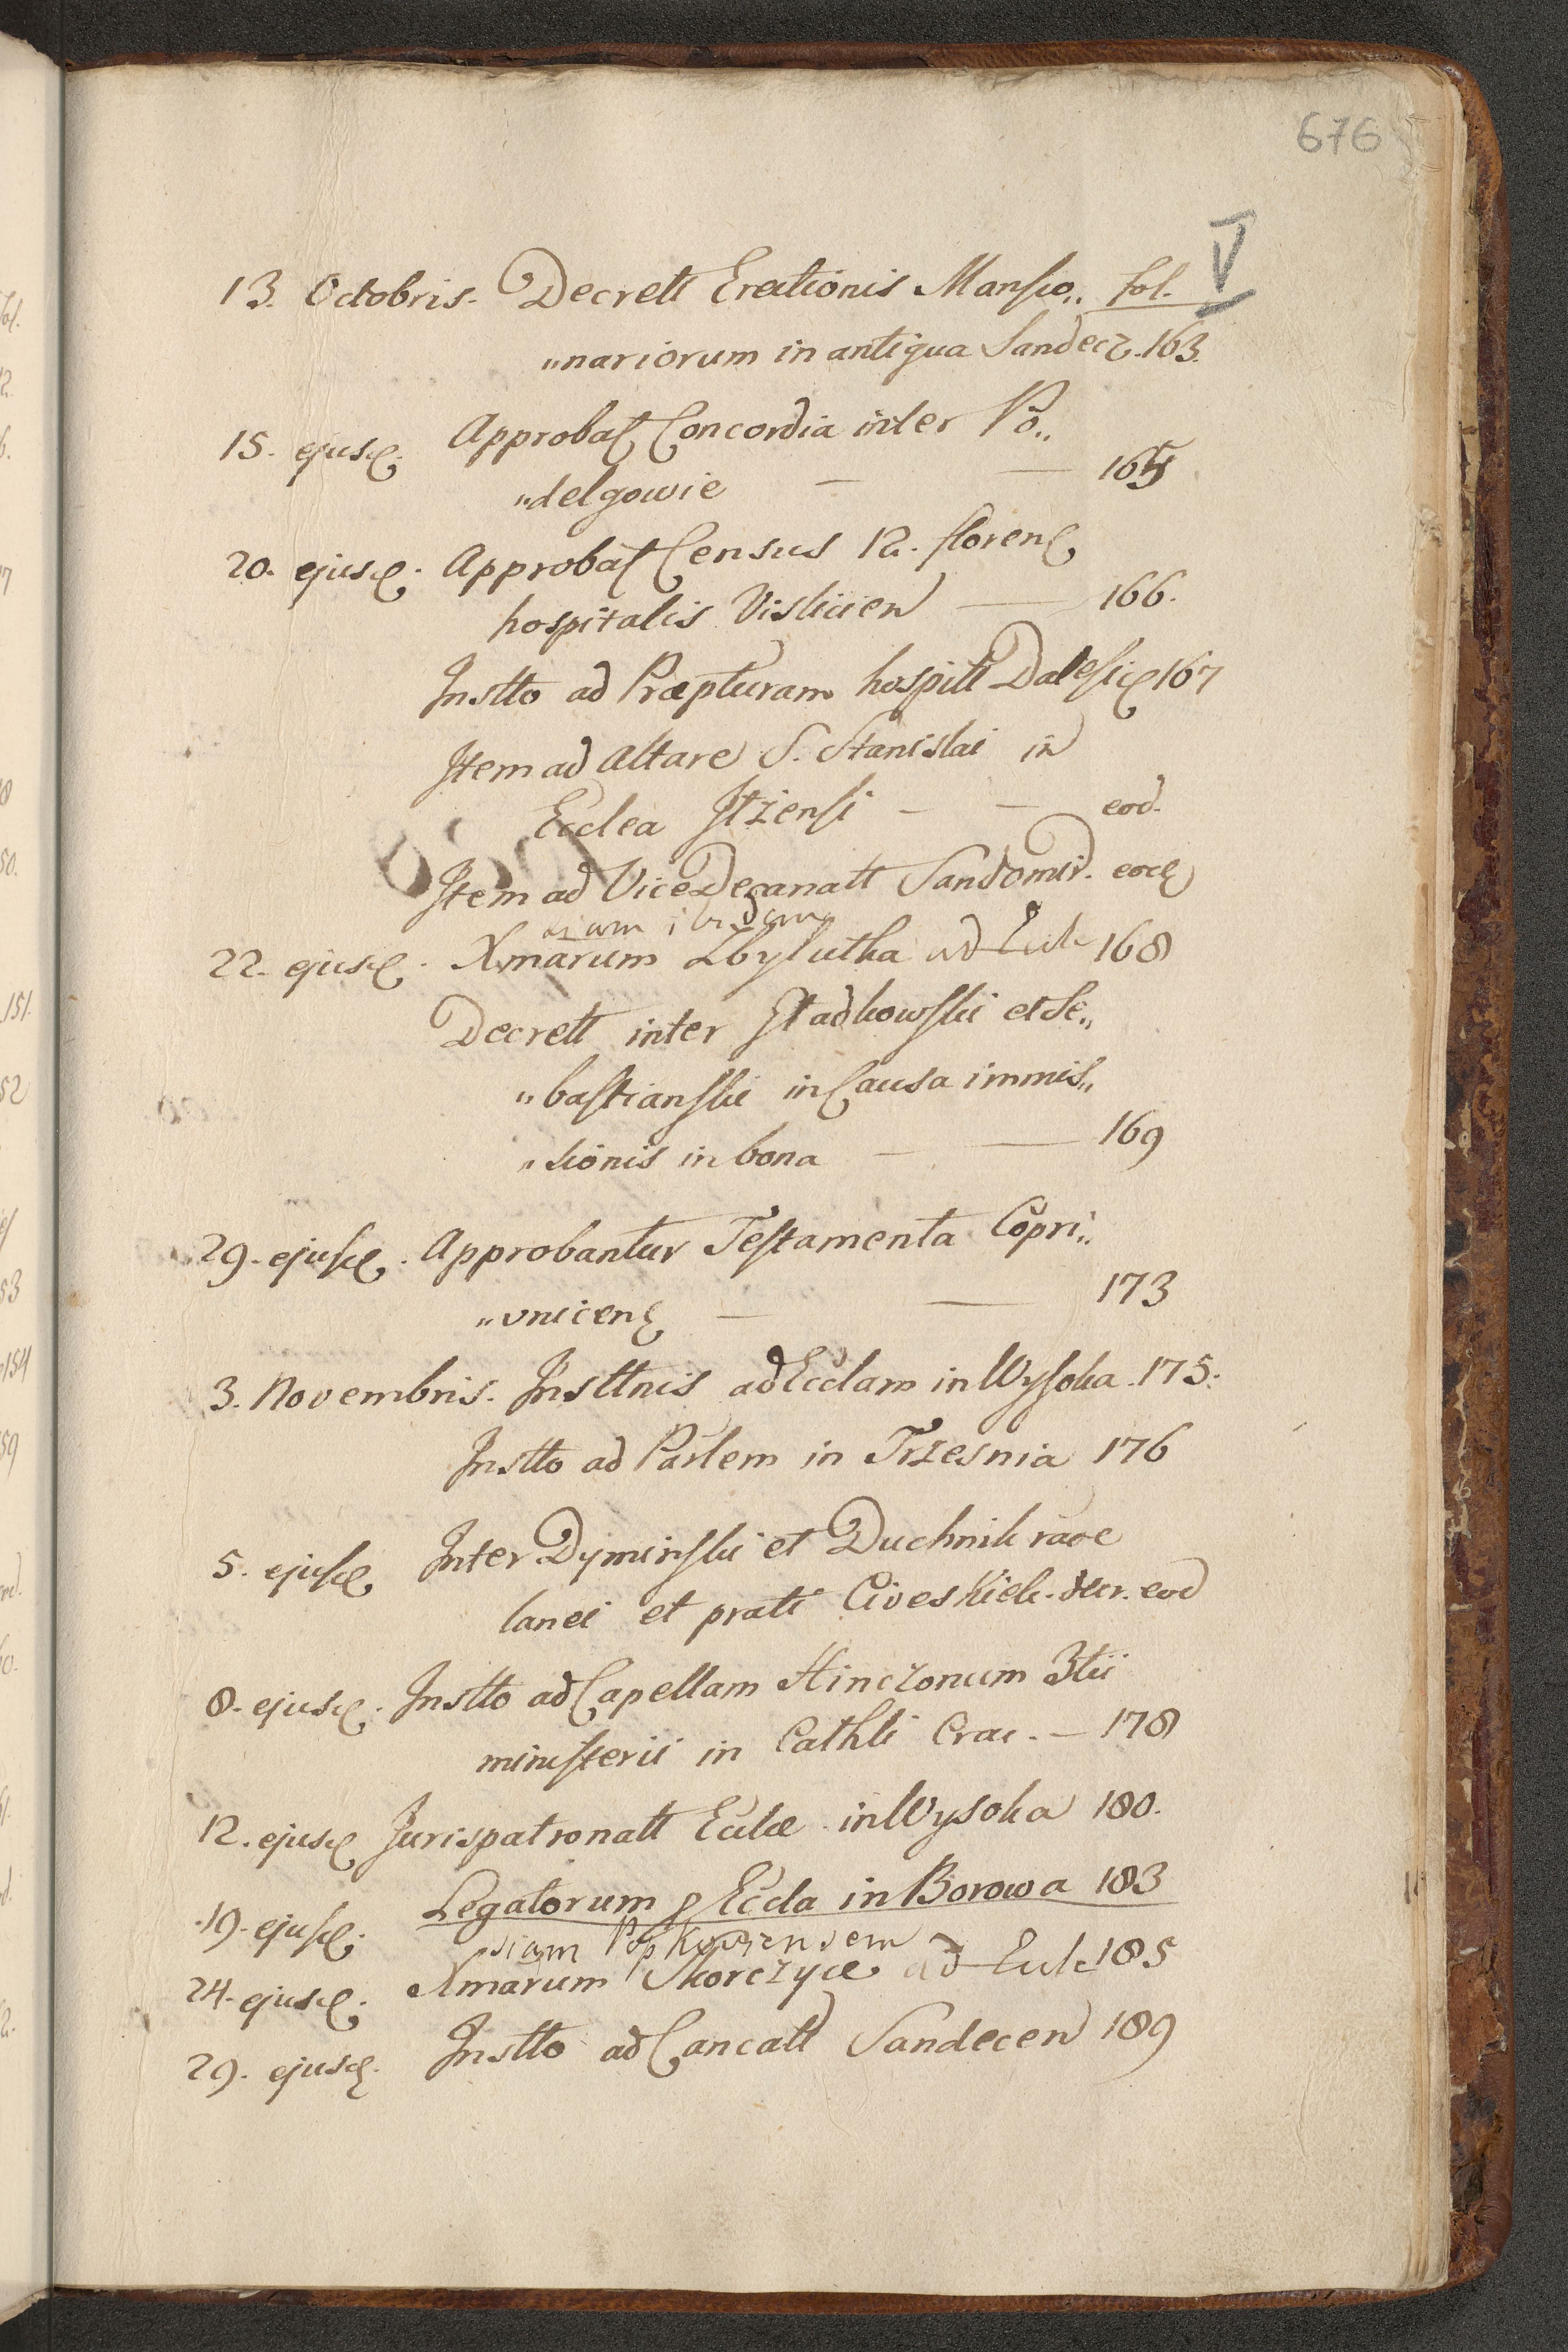 676
V
13. Octobris. Decrett Erectionis Mansio„ fol.
„nariorum in antiqua Sandecz. 163.
15. ejusd. Approbat Concordia inter Po„
„delgowie — — 165
20. ejusd. Approbat Census 12. floren
hospitalis Vislicien — 166.
Instto ad Præpturam hospitt Dalesic 167
Item ad Altare S. Stanislai in
Ecclea Ilzensi — — eod.
Item ad ViceDecanatt Sandomir. eod
siam ibidem
22. ejusd. Xmarum Zbylutka ad Eccle 168
Decrett inter Gladkowski et Se„
„bastianski in Causa immis„
„sionis in bona — — 169
29. ejusd. Approbantur Testamenta Copri„
„vnicen — — 173
3. Novembris. Insttnis ad Ecclam in Wysoka. 175.
Instto ad Parlem in Trzesnia 176
5. ejusd. Inter Dyminski et Duchnik raoe
lanei et prati Cives Kiel. eod
8. ejusd. Instto ad Capellam Hinczonum 3tii
ministerii in Cathli Crac. — 178
12. ejusd Jurispatronatt Ecclæ in Wysoka 180.
19. ejusd. Legatorum p Eccla in Borowa 183
siam Popkovicensem
24. ejusd. Xmarum Skorczyce ad Eccle 185
29. ejusd. Instto ad Cancatt Sandecen 189